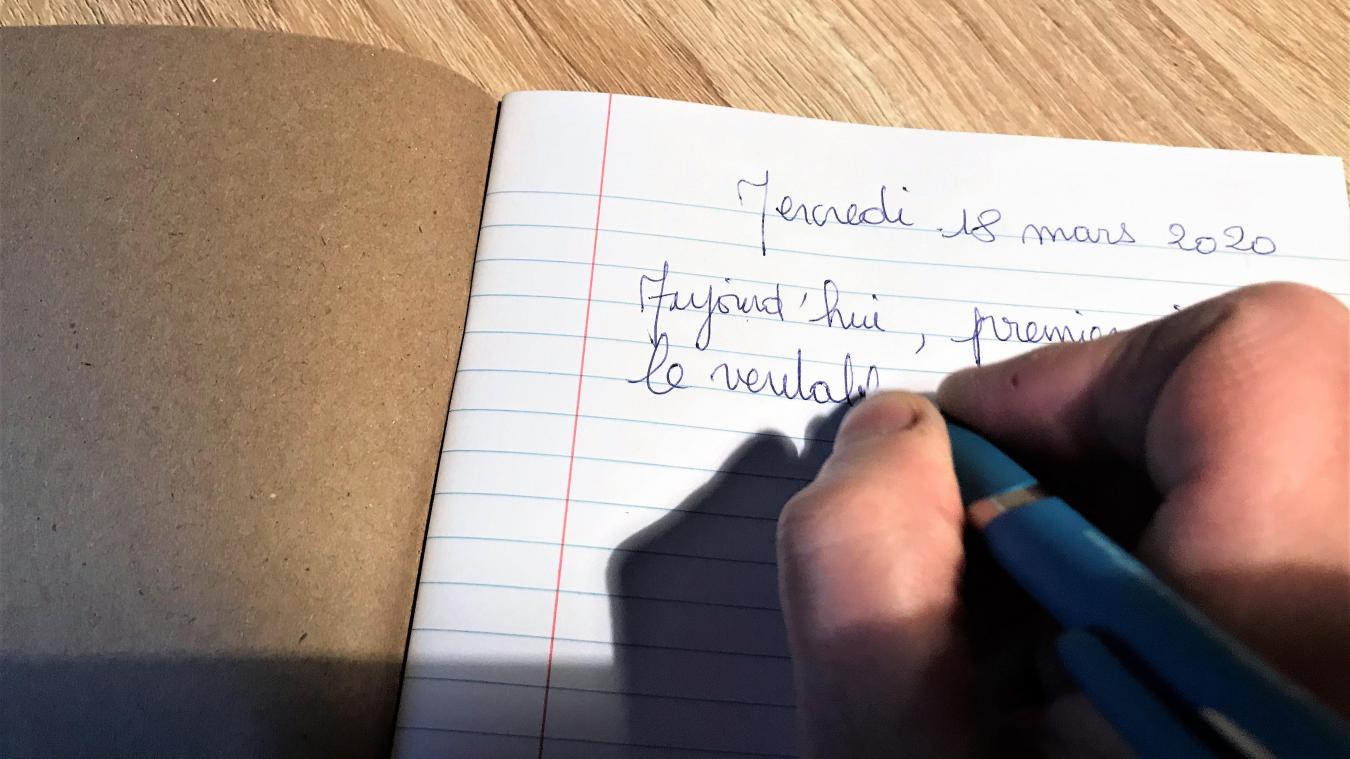 Mercredi 18 mars 2020
Aujourd'hui, premier
le